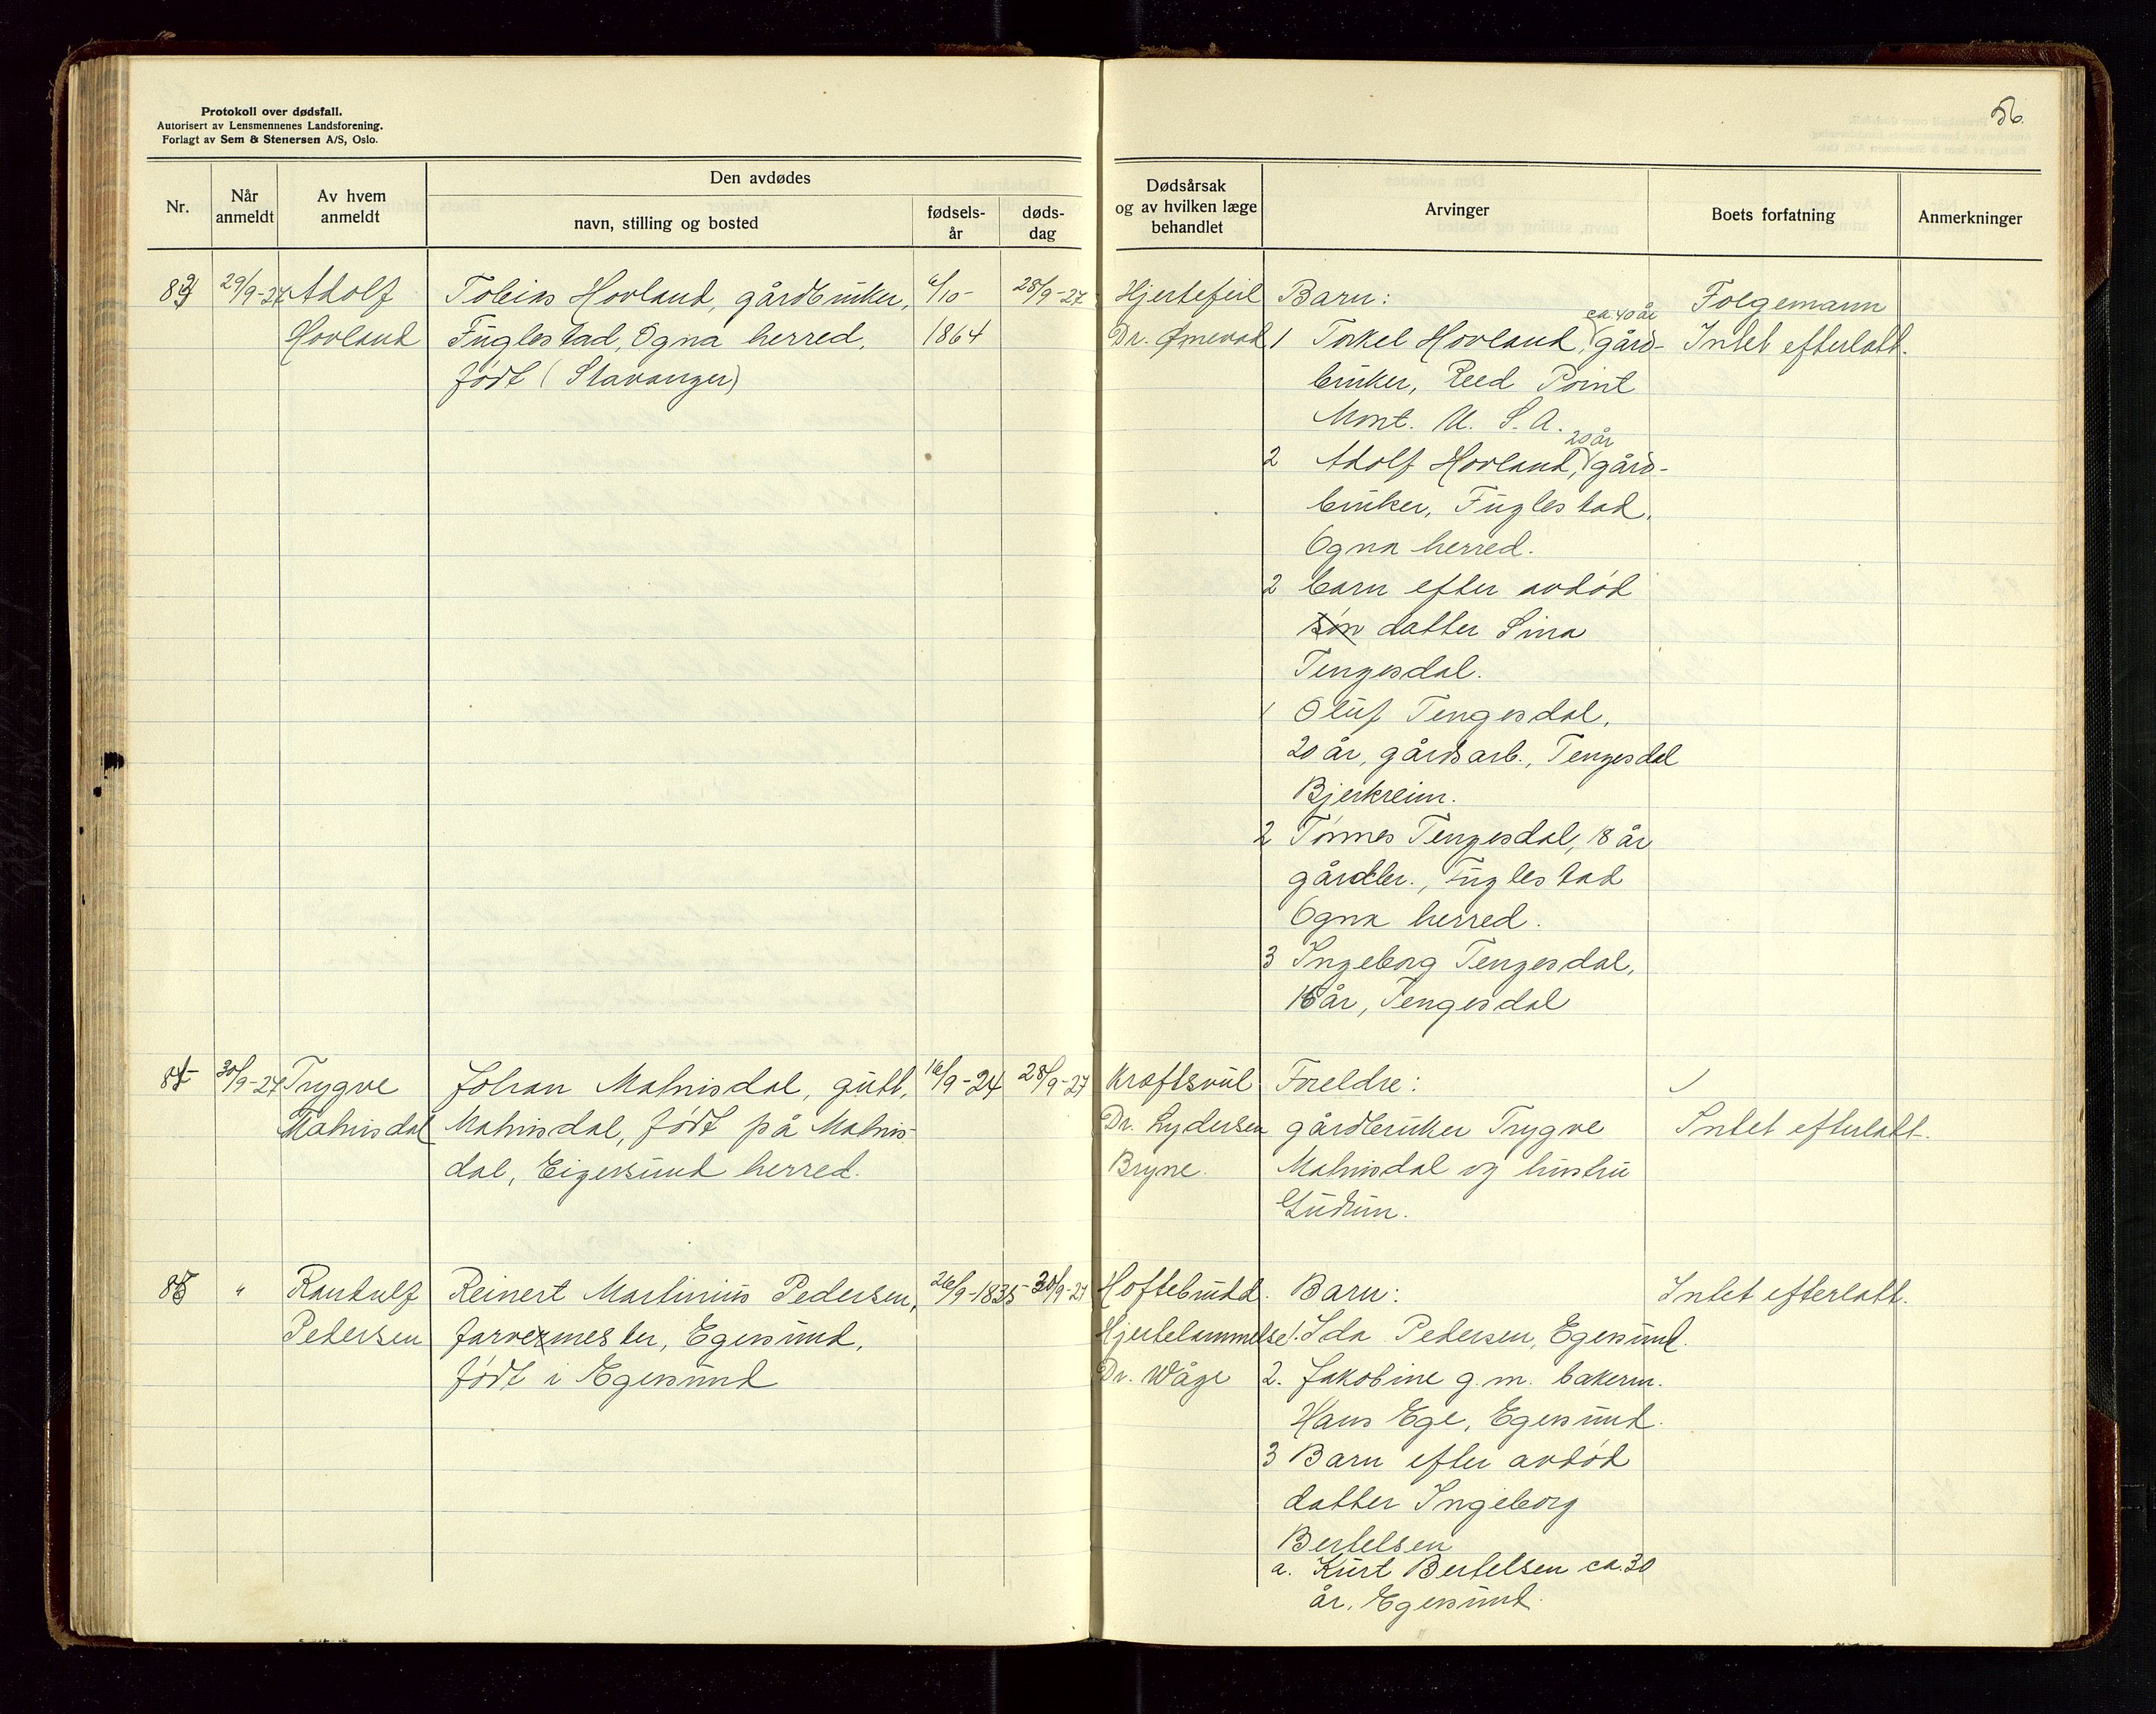 Protokoll over dødsfall.
Autorisert av Lensmennenes Landsforening.
Forlagt av Sem & Stenersen A/S, Oslo.
56.
Nr.
Når anmeldt
Av hvem anmeldt
Den avdødes
navn, stilling og bosted
fødsels-år
døds-dag
Dødsårsak og av hvilken læge behandlet
Arvinger
Boets forfatning
Anmerkninger
29/9-27 Adolf
Hovland
Tobias Hovland, gårdbruker,
Fuglestad, Ogna herred,
født (Stavanger)
/10-
1864
28/9-27
Hjertefeil
Dr.
Barn:
ca. 40 år
1 Torkel Hovland, gård-
bruker, Reed Point
Mont. U. S. A.
20 år
2 Adolf Hovland, gård-
bruker, Fuglestad,
Ogna herred.
2 barn efter avdød
søn datter Sina
Tengesdal.
1 Oluf Tengesdal,
20 år, gårdsarb., Tengesdal
Bjerkreim.
2 Tønnes Tengesdal, 18 år
gårdbr., Fuglestad
Ogna herred.
3 Ingeborg Tengesdal,
16 år, Tengesdal
Folgemann
Intet efterlatt.
30/9-27 Trygve
Malmisdal
Johan Malmisdal, gutt,
Malmisdal, født på Malmis-
dal, Eigersund herred.
16/9-24
28/9-27
Kraftsvul
Dr. Lydersen
Bryne.
Foreldre:
gårdbruker Trygve
Malmisdal og hustru
Gudrun.
Intet efterlatt.
"
Randulf
Pedersen
Reinert Martinius Pedersen,
farvermester, Egersund,
født i Egersund
26/9-1835
30/9-27
Hoftebrudd.
Hjertelammelse
Dr. Wåge
Barn:
1. Ida Pedersen, Egersund.
2. Jakobine g. m. bakerm.
Hans Ege, Egersund.
3 Barn efter avdød
datter Ingeborg
Bertelsen
a. Kurt Bertelsen ca. 30
år, Egersund.
Intet efterlatt.